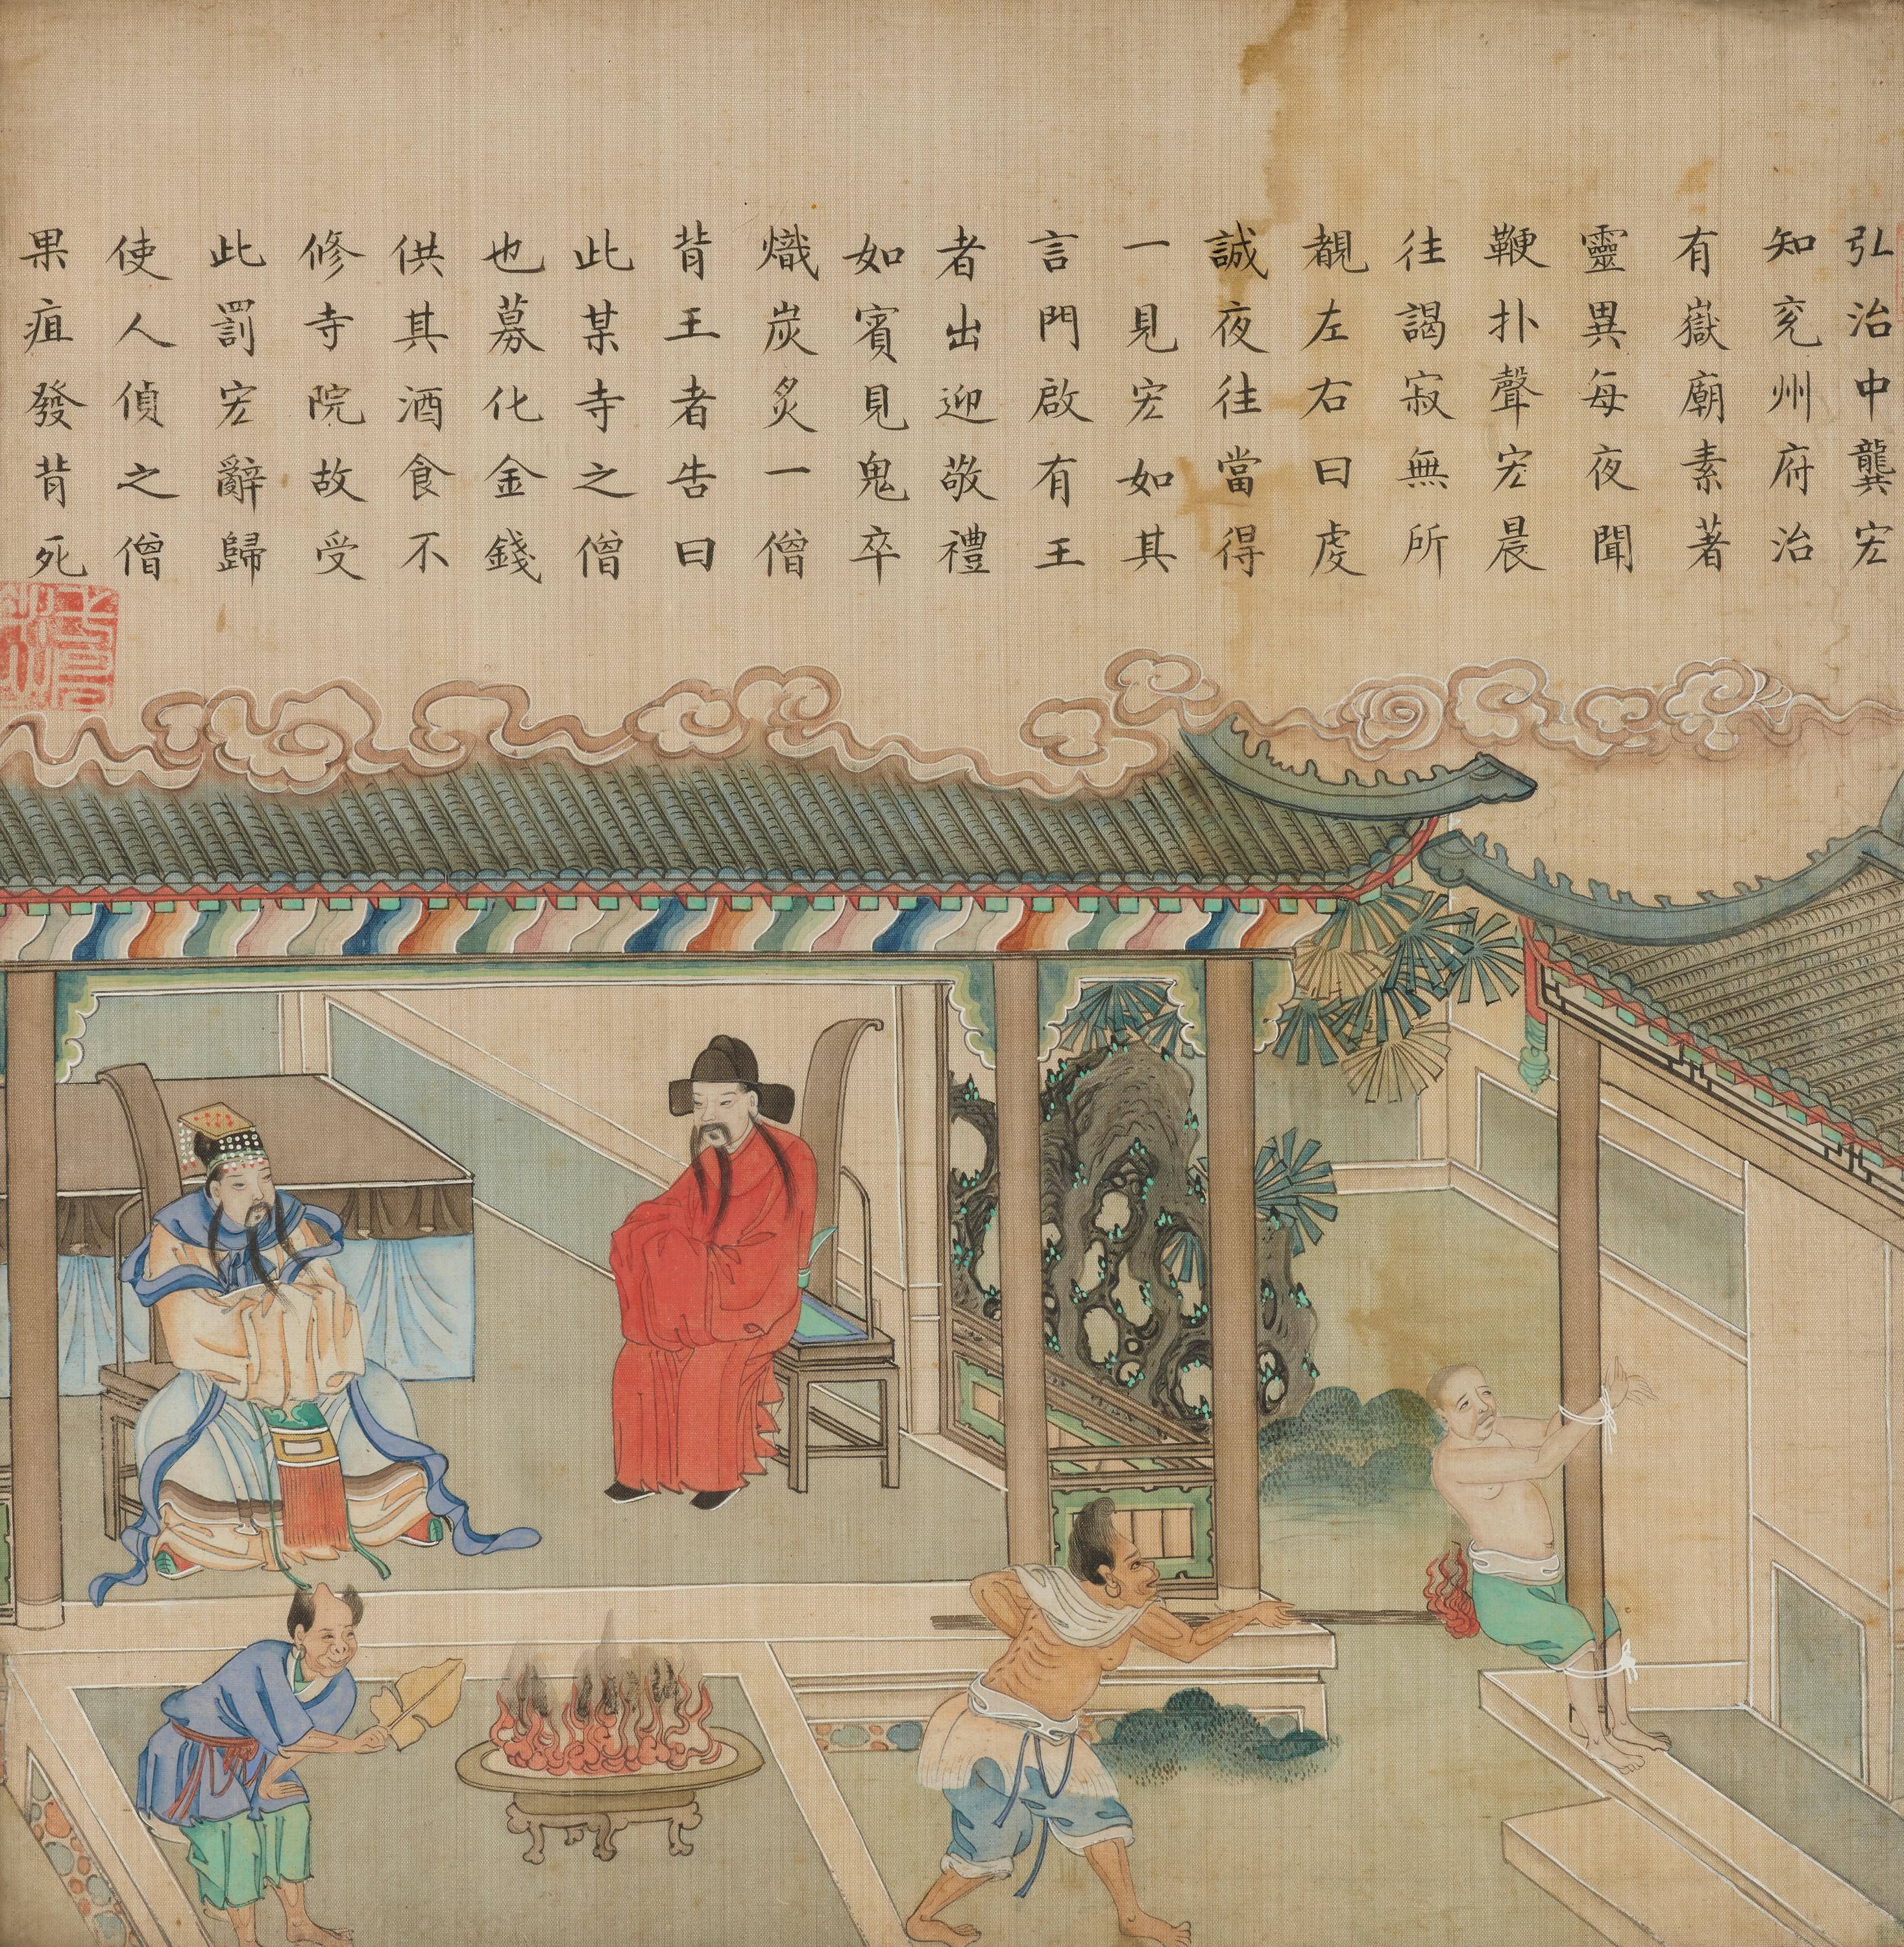 弘治中龔宏
知兖州府治
有嶽廟素著
靈異每夜聞
鞭扑聲宏晨
往謁寂無所
覩左右曰虔
誠夜往當得
一見宏如其
言門啟有王
者出迎敬禮
如賓見鬼卒
熾炭炙一僧
背王者告曰
此某寺之僧
也募化金錢
供其酒食不
修寺院故受
此罰宏辭歸
使人偵之僧
果疽發背死